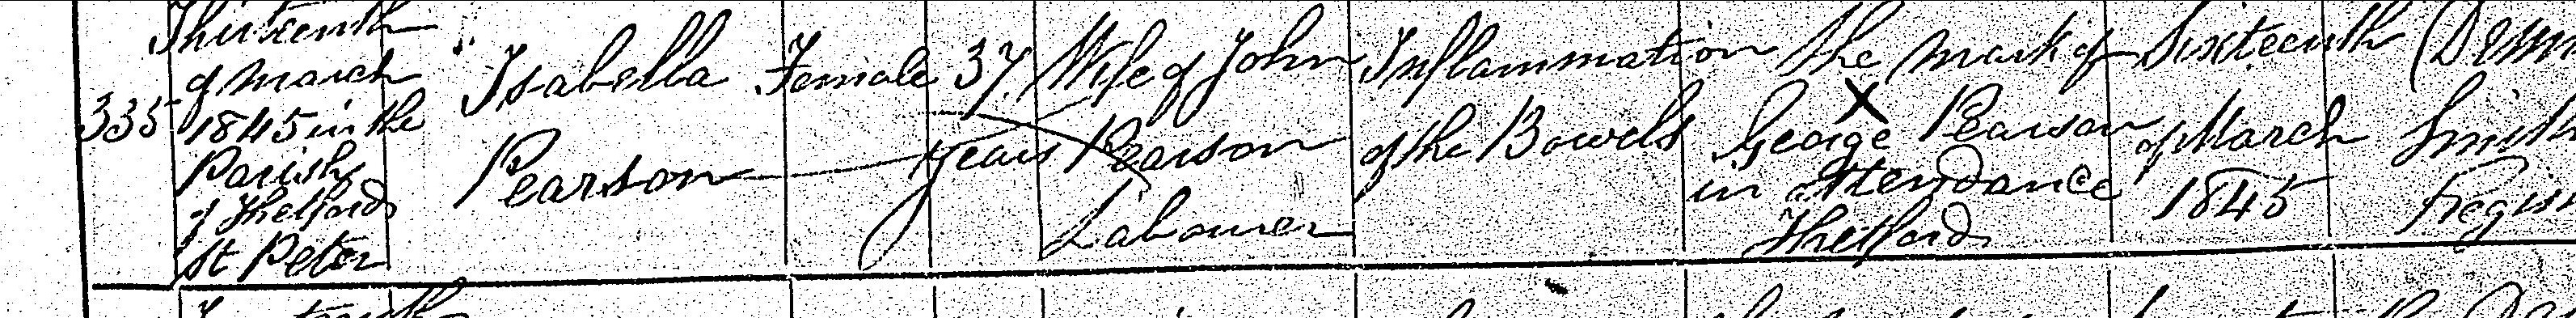 335
Thirteenth
of March
1845 in the
Parish
of Thetford
St Peter
Isabella
Pearson
Female
37
years
Wife of John
Pearson
Labourer
Inflammation
of the Bowels
The mark of
X
George Pearson
in attendance
Thetford
Sixteenth
of March
1845